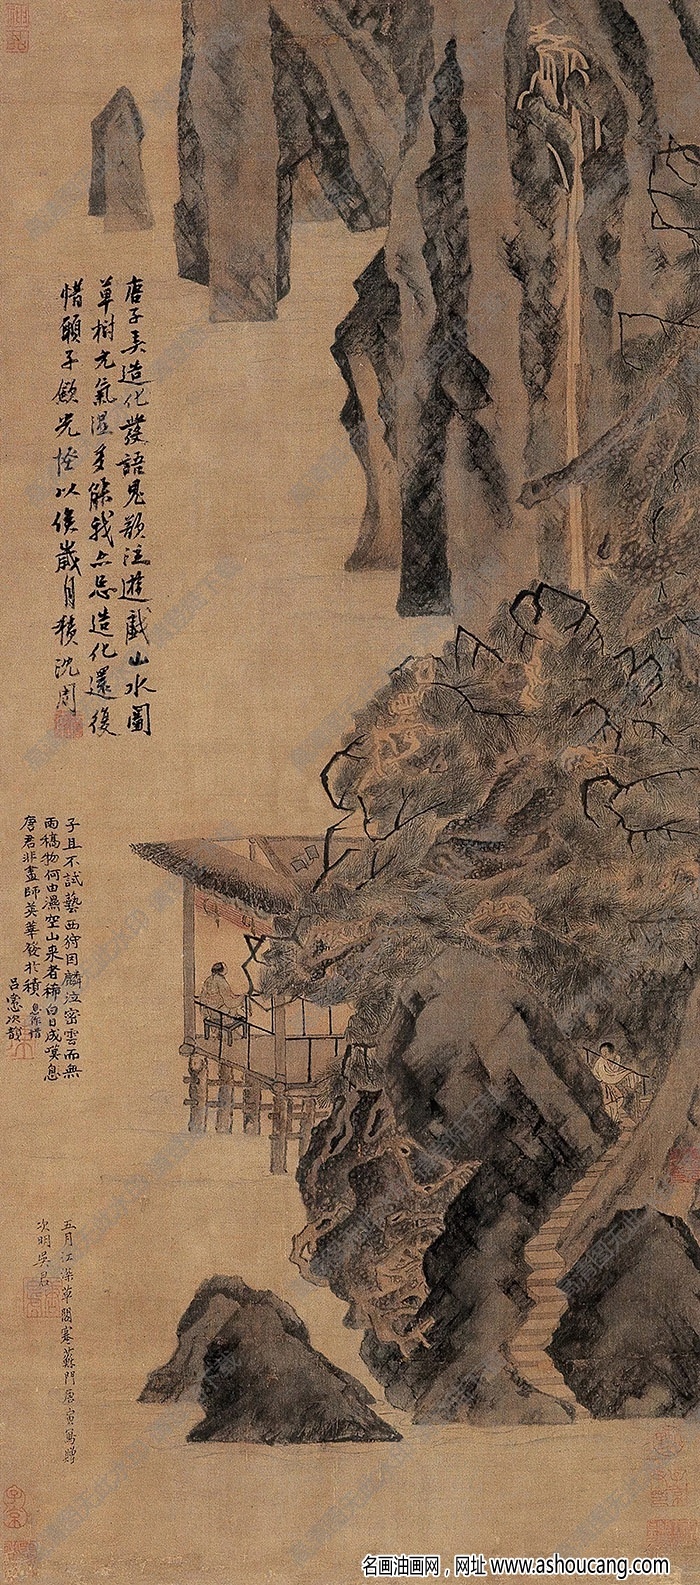 唐子弄造化發語鬼欲泣遊戲山水圖
草樹元氣濕多能我亦忌造化還復
惜願子斂光怪以俟歲月積沈周
子且不試藝西狩因麟泣密雲而無
雨稿物何由濕空山來者稀白日成嘆息
唐君非畫師英華發於積
呂㦂次韻
五月江深草閣寒蘇門唐寅寫贈
次明吳君
名画油画网，网址 www.ashoucang.com